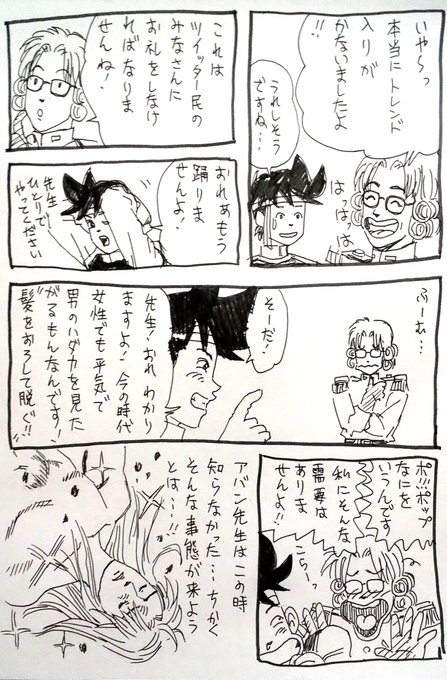 いや〜っ
本当にトレンド
入りが
かないましたよ
はっはっは
うれしそう
ですね…
これは
ツイッター民の
みなさんに
お礼をしなけ
ればなりま
せんね！
おれぁもう
踊りま
せんよ！
先生
ひとりで
やってください
ふーむ…
そーだ！
先生！おれ わかり
ますよ！今の時代
女性でも平気で
男のハダカを見た
がるもんなんです！
髪をおろして脱ぐ!!
ポ!!!ポップ
なにを
いうんです
私にそんな
需要は
ありま
せんよ!!
こら〜っ
アバン先生はこの時
知らなかった…ちかく
そんな事態が来よう
とは…!!